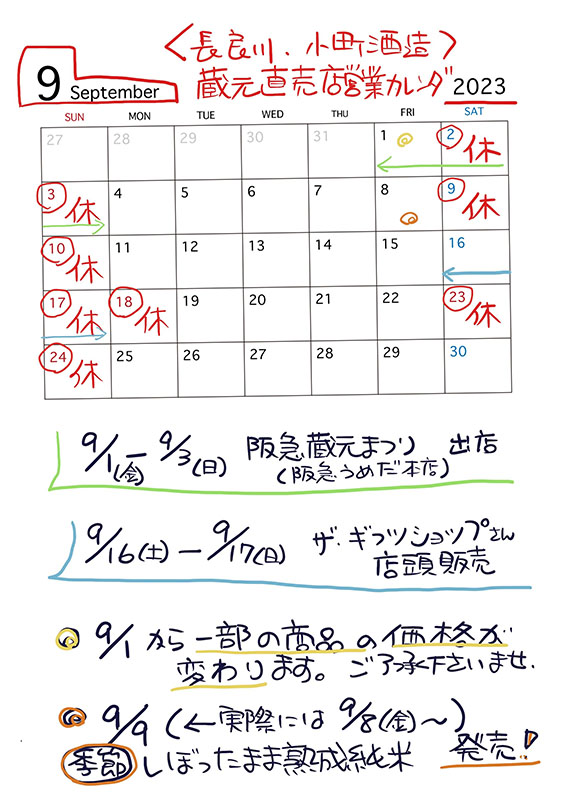 〈長良川、小町酒造〉
蔵元直売店営業カレンダー
9 September 2023
SUN MON TUE WED THU FRI SAT
27 28 29 30 31 1 2 休
3 休 4 5 6 7 8 9 休
10 休 11 12 13 14 15 16
17 休 18 休 19 20 21 22 23 休
24 休 25 26 27 28 29 30
9/1(金) ー 9/3(日) 阪急蔵元まつり 出店
(阪急うめだ本店)
9/16(土) ー 9/17(日) ザ・ギフツショップさん
店頭販売
9/1 から 一部の商品の価格が
変わります。ご了承下さいませ.
9/9 (←実際には 9/8(金)〜)
季節 しぼったまま熟成純米 発売!